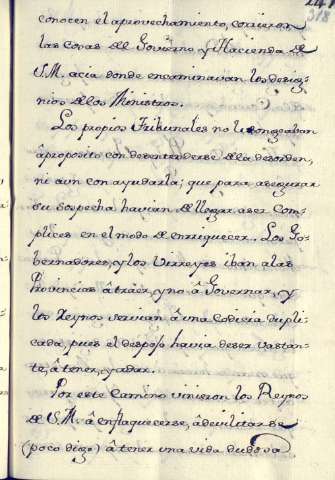 conocen el aprovechamiento, corrieron
las cosas del Govierno y Hacienda de
S.M. acia donde encaminavan los desig-
nios de los Ministros.
Los propios Tribunales no lisongeaban
â proposito con desentenderse de la desorden,
ni aun con ayudarla; que, para asegurar
su sospecha havian de llegar a ser Com-
plices en el modo de enriquecer. Los Go-
bernadores, y los Virreyes iban a las
Provincias â tráer, y no â Governar, y
los Reynos servian â una Codicia dupli-
cada, pues el despojo havia de ser vastan-
te, â tener, y a dar.
Por este Camino vinieron los Reynos
de S.M. â enflaquecerse, â devilitarse
(poco digo) â tener una vida dudosa